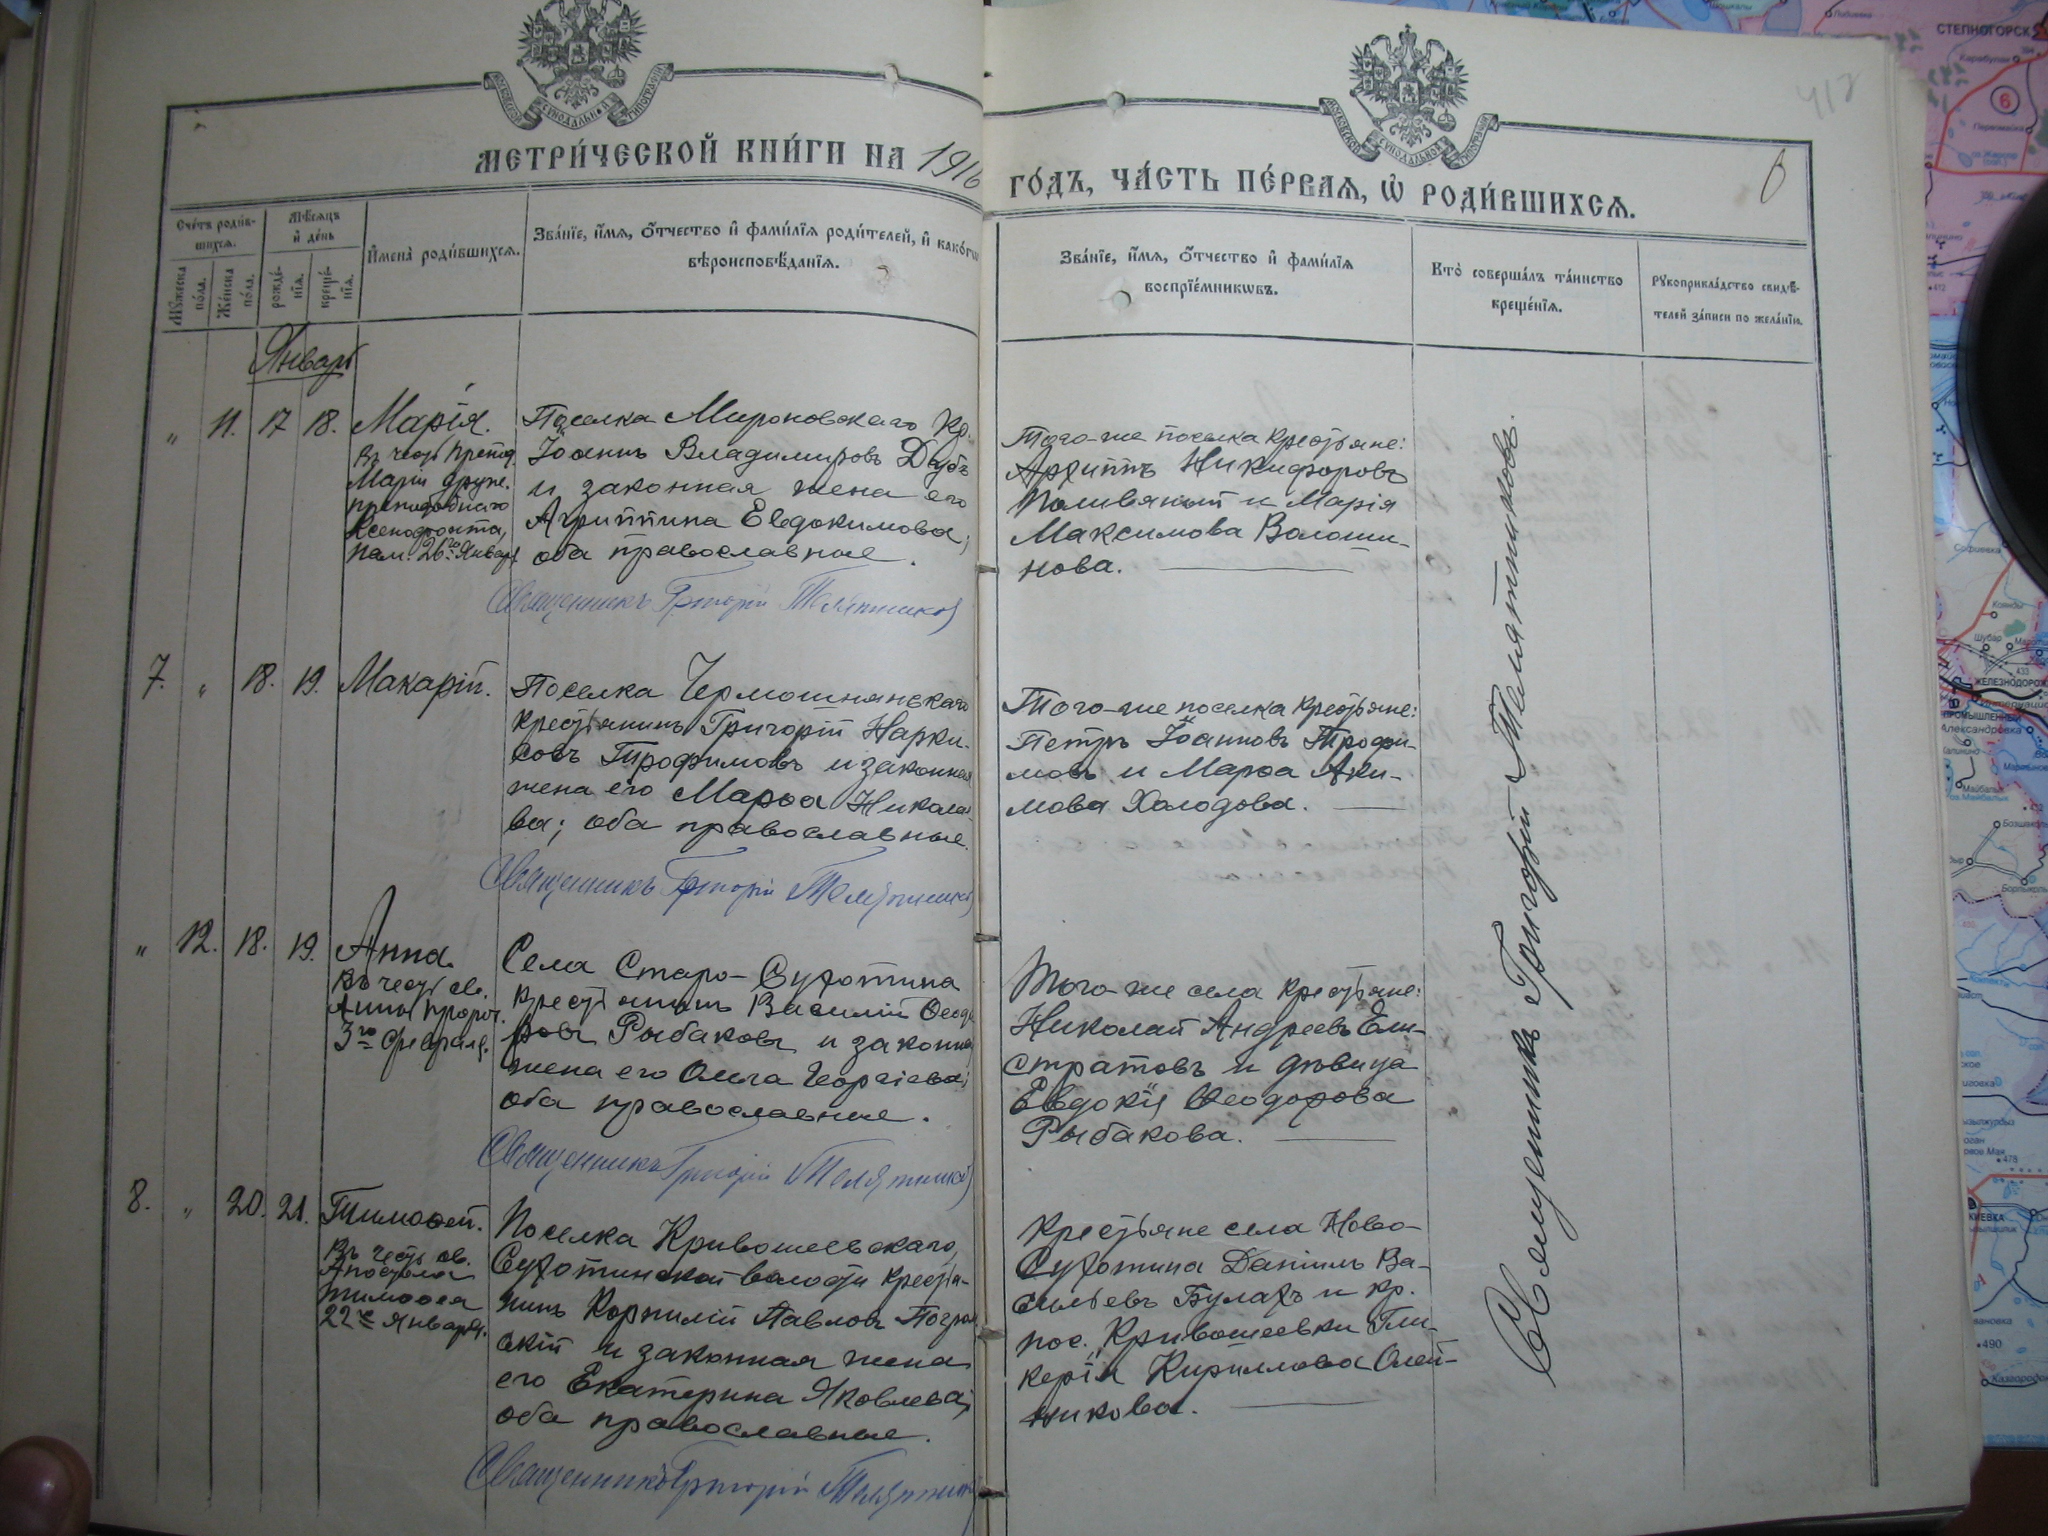 МЕТРИ́ЧЕСКОЙ КНИ́ГИ НА 1916
ГО́ДЪ, ЧА́СТЬ ПЕ́РВАЯ, Ѽ РОДИ́ВШИХСЯ.
6
412
МОСКОВСКОЙ СѴНОДАЛЬНОЙ ТИПОГРАФІИ
МОСКОВСКОЙ СѴНОДАЛЬНОЙ ТИПОГРАФІИ
Сче́тъ роди́в-
шихся.
Мꙋ́жеска по́ла.
Же́нска по́ла.
Мѣ́сяцъ
и҆ де́нь
рожде́-
нїя.
креще́-
нїя.
И҆мена̀ роди́вшихся.
Зва́нїе, и҆́мя, о҆́тчество и҆ фами́лїя роди́телей, и҆ како́гѡ
вѣроисповѣ́данїя.
Зва́нїе, и҆́мя, о҆́тчество и҆ фами́лїя
воспрїе́мникѡвъ.
Кто̀ соверша́лъ та́инство
креще́нїя.
Рꙋкоприкла́дство свидѣ́-
телей за́писи по жела́нїю.
Январь
" 11. 17 18. Марія.
Въ честь препод.
Маріи друж.
преподобнаго
Ксенофонта,
пам. 26го Января
Поселка Мироновскаго Кр.
Іоаннъ Владимировъ Дубъ
и законная жена его
Агриппина Евдокимова;
оба православные.
Священникъ Григорій Телятников
Того-же поселка крестьяне:
Архиппъ Никифоровъ
Поливяный и Марія
Максимова Волоши-
нова.
7. " 18. 19. Макарій.
Поселка Чермошнянскаго
крестьянинъ Григорій Нарки-
совъ Трофимовъ и законная
жена его Марѳа Никола
ва; оба православные.
Священникъ Григорій Телятников
Того-же поселка крестьяне:
Петръ Іоанновъ Трофи-
мовъ и Марѳа Аки-
мова Холодова.
" 12. 18. 19. Анна.
Въ честь св.
Анны прор.
3го февраля.
Села Старо-Сухотина
крестьянинъ Василій Ѳеодо
ровъ Рыбаковъ и законна
жена его Ольга Георгіева;
оба православные.
Священникъ Григорій Телятников
Того-же села крестьяне:
Николай Андреевъ Ели-
стратовъ и дѣвица
Евдокія Ѳеодорова
Рыбакова.
8. " 20. 21. Тимоѳей.
Въ честь св.
Апостола
Тимоѳея
22го Января.
Поселка Кривошеевскаго,
Сухотинской волости крестья-
нинъ Корнилій Павловъ
скій и законная жена
его Екатерина Яковлева;
оба православные.
Священникъ Григорій Телятник
Крестьяне села Ново-
Сухотина Даніилъ Ва-
сильевъ Булахъ и кр.
пос. Кривошеевки Гли-
керія Кириллова Олей-
никова.
Священникъ Григорій Телятниковъ.
СТЕПНОГОРСК
Карабулак
6
Первомайка
412
Софиевка
Коянды
Шубар
433
ЖЕЛЕЗНОДОРОЖ
ПРОМЫШЛЕННЫЙ
Александровка
Майбалык
оз.Майбалык
478
КИЕВКА
490